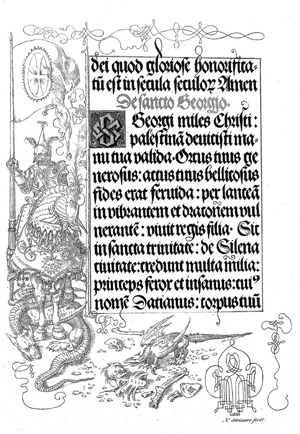 dei quod gloriose honorifica-
tū est in secula seculoꝝ Amen
De sancto Georgio.
S Georgi miles Christi:
palestinā deuicisti ma-
nu tua valida. Ortus tuus ge
nerosus: actus tuus bellicosus
fides erat feruida: per lanceā
in vibrantem et draconem vul
nerantē: viuit regis filia. Sit
in sancta trinitate: de Silena
ciuitate: credunt multa milia:
princeps ferox et insanus: cuiꝰ
nomē Datianus: corpus tuū
N. Strixner fecit.